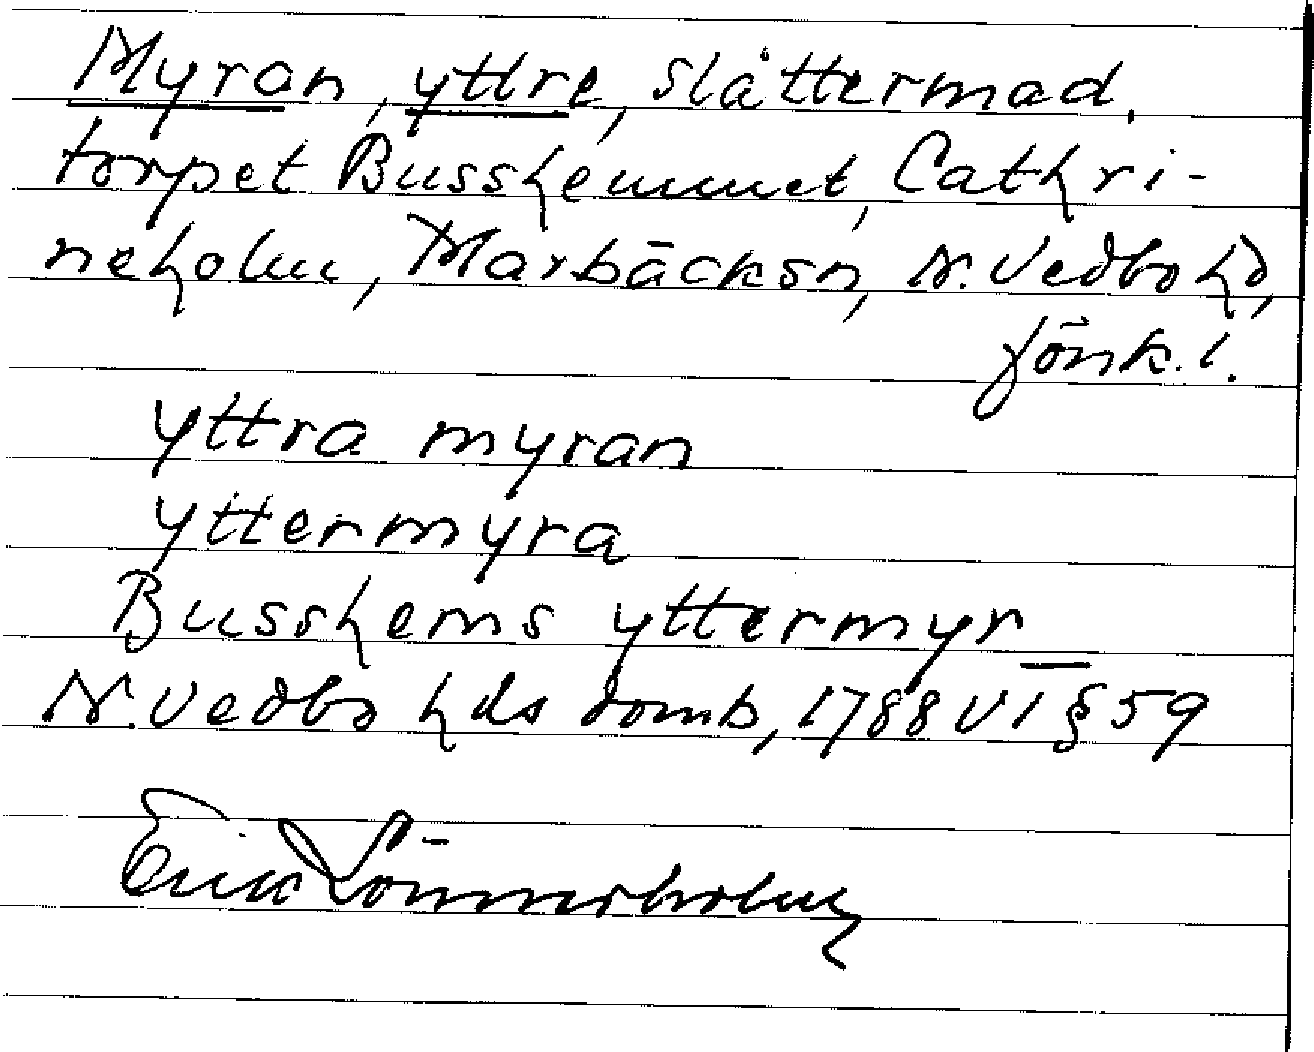 Myran, yttre, slåttermad,
torpet Busshemmet, Cathri-
neholm, Marbäcksn, N. Vedbo hd,
Jönk. l.
yttra myran
yttermyra
Busshems yttermyr_
N. Vedbo hds domb, 1788 VI § 59
Erik Lönnerholm